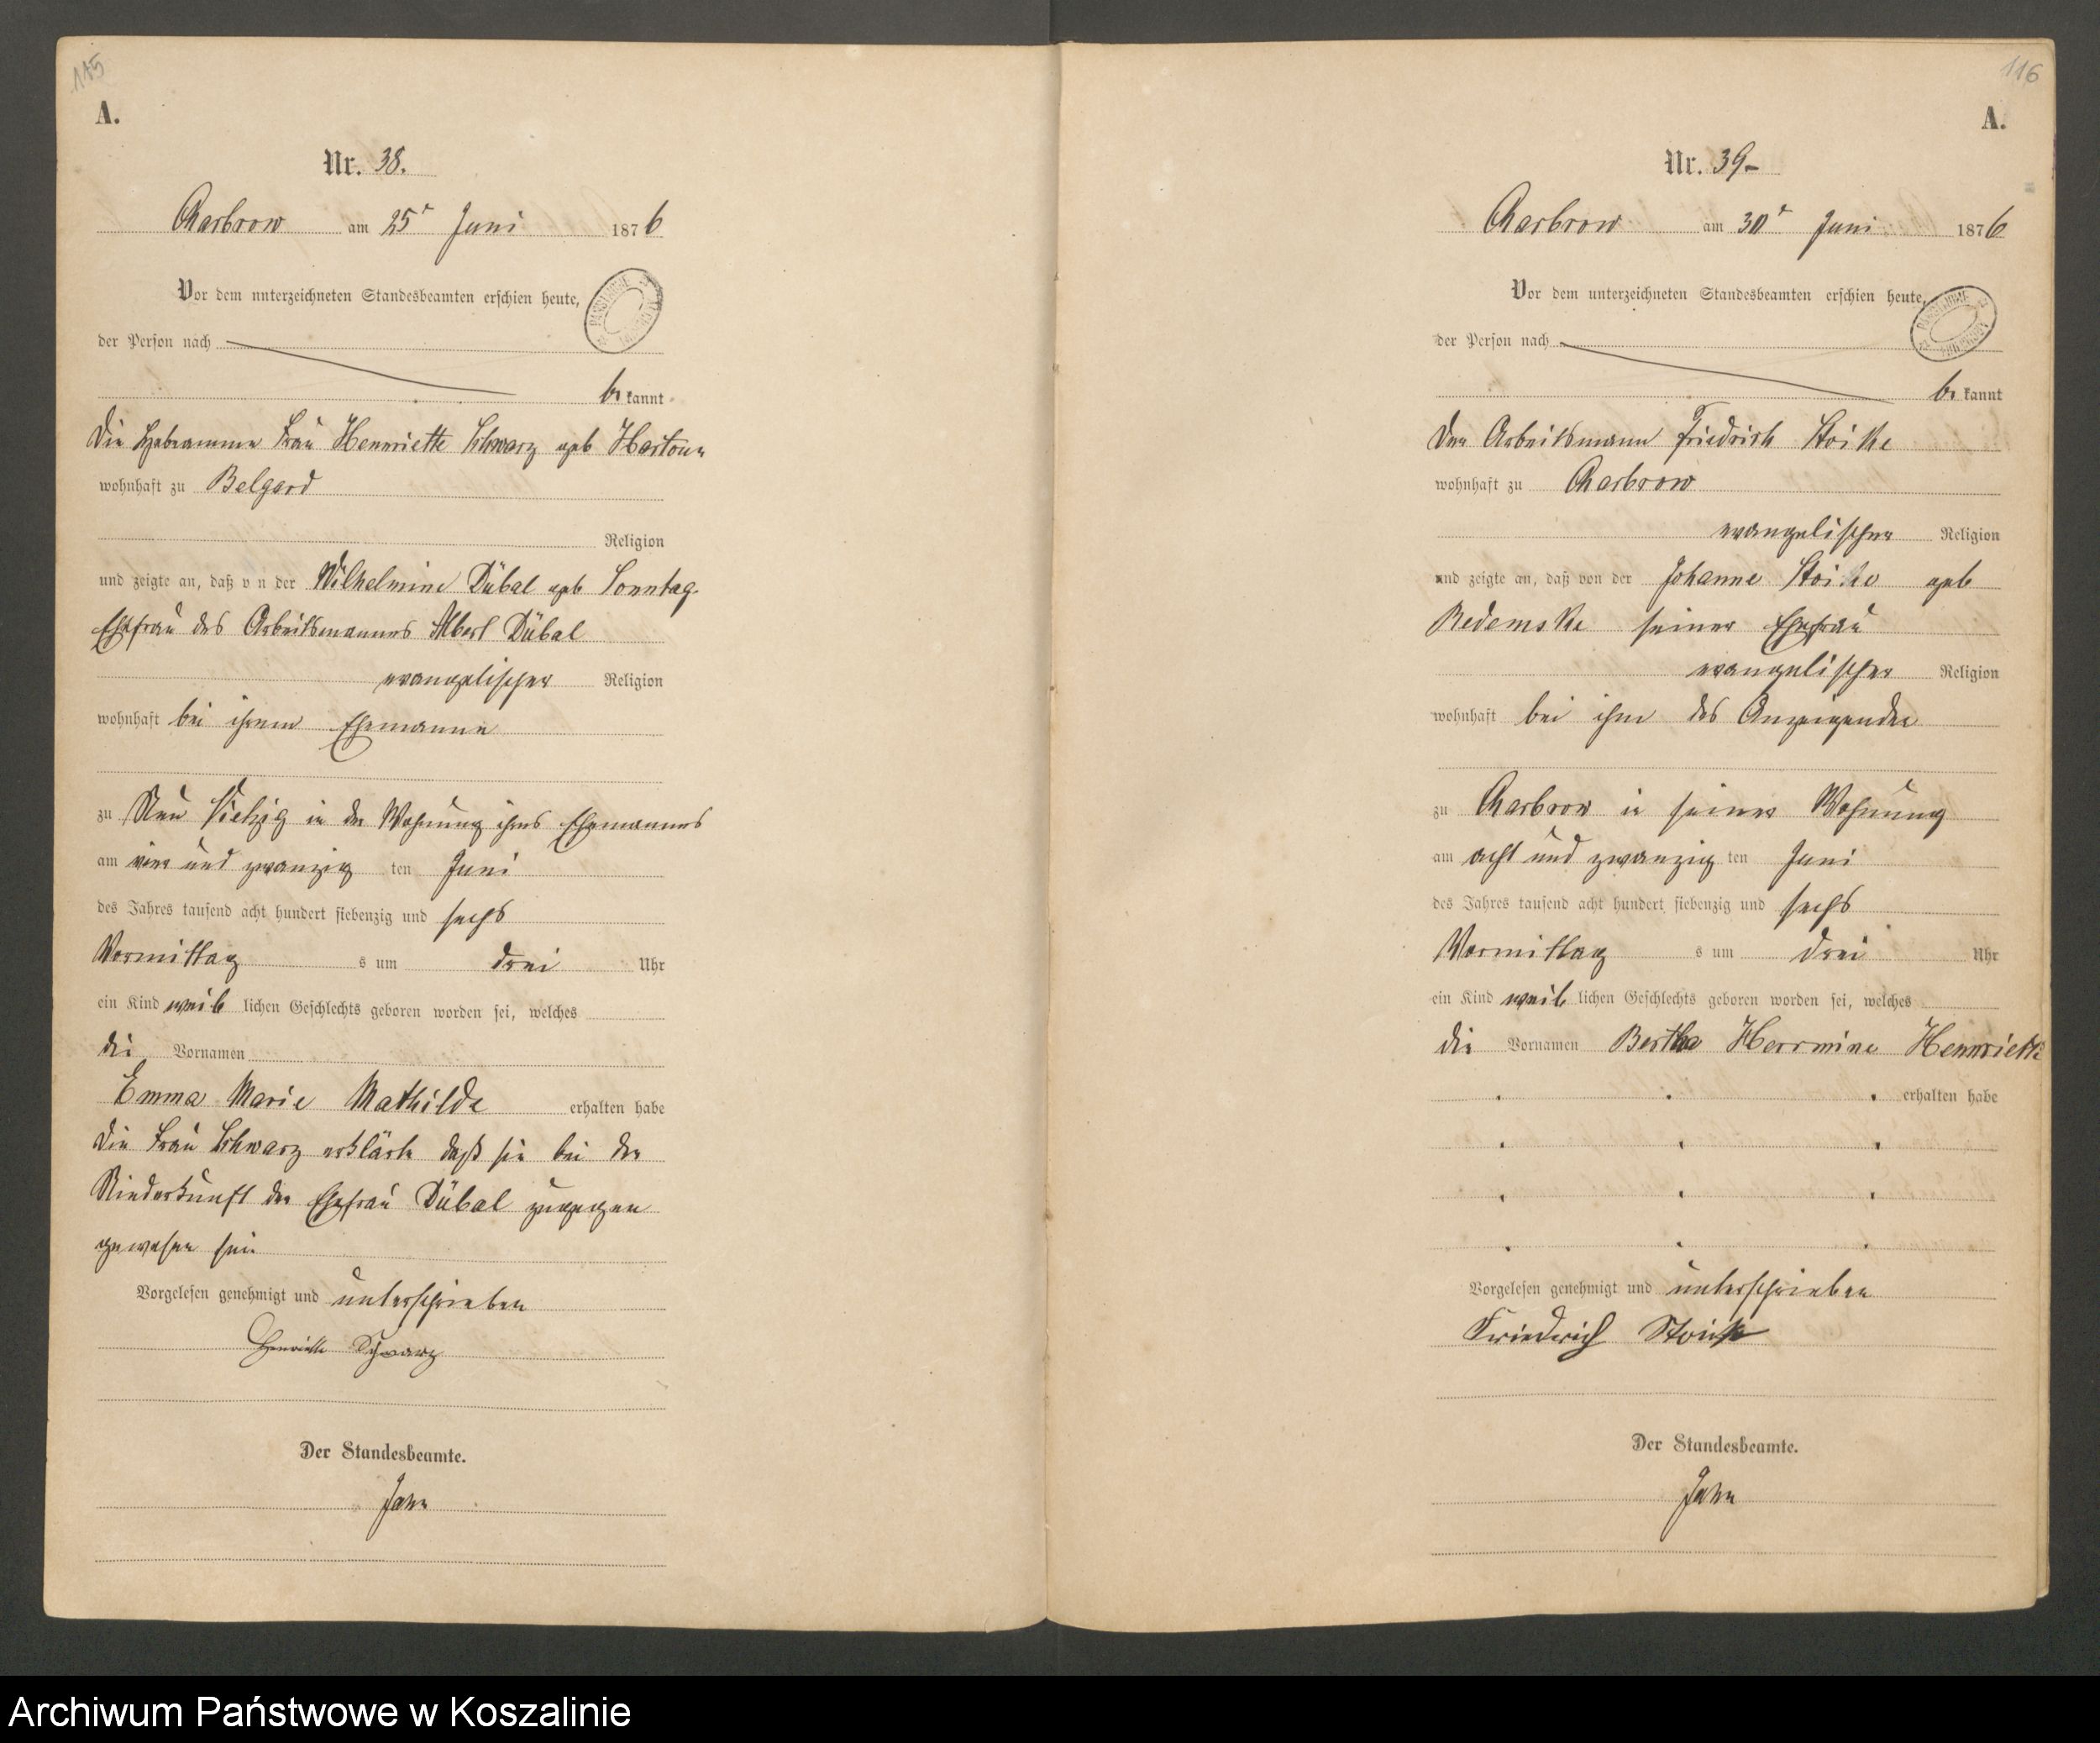 115
A.
Nr. 38.
Charbrow am 25ᵗ Juni 1876
Vor dem unterzeichneten Standesbeamten erschien heute,
der Person nach
be kannt
Die Hebeamme Frau Hennriette Schwarz geb
wohnhaft zu Belgard
Religion
und zeigte an, daß v n der Wilhelmine Dübal geb Sonntag
Ehefrau des Arbeitsmannes Albert Dübal
evangelischer Religion
wohnhaft bei ihrem Ehemanne
zu Neu Vietzig in der Wohnung ihres Ehemannes
am vier und zwanzig ten Juni
des Jahres tausend acht hundert siebenzig und sechs
Vormittag s um drei Uhr
ein Kind weib lichen Geschlechts geboren worden sei, welches
die Vornamen
Emma Marie Mathilde erhalten habe
Die Frau Schwarz erklärte daß sie bei der
Niederkunft der Ehefrau Dübal zugegen
gewesen sei.
Vorgelesen genehmigt und unterschrieben
Henriette Schwarz
Der Standesbeamte.
Jahn
116
A.
Nr. 39
Charbrow am 30ᵗ Juni 1876
Vor dem unterzeichneten Standesbeamten erschien heute,
der Person nach
be kannt
Der Arbeitsmann Friedrich Stoike
wohnhaft zu Charbrow
evangelischer Religion
und zeigte an, daß von der Johanne Stoike geb
Redemske seiner Ehefrau
evangelischer Religion
wohnhaft bei ihm des Anzeigender
zu Charbrow in seiner Wohnung
am acht und zwanzig ten Juni
des Jahres tausend acht hundert siebenzig und sechs
Vormittag s um drei Uhr
ein Kind weib lichen Geschlechts geboren worden sei, welches
die Vornamen Bertha Herrmine Hennriette
erhalten habe
Vorgelesen genehmigt und unterschrieben
Friedrich Stoike
Der Standesbeamte.
Jahn
Archiwum Państwowe w Koszalinie